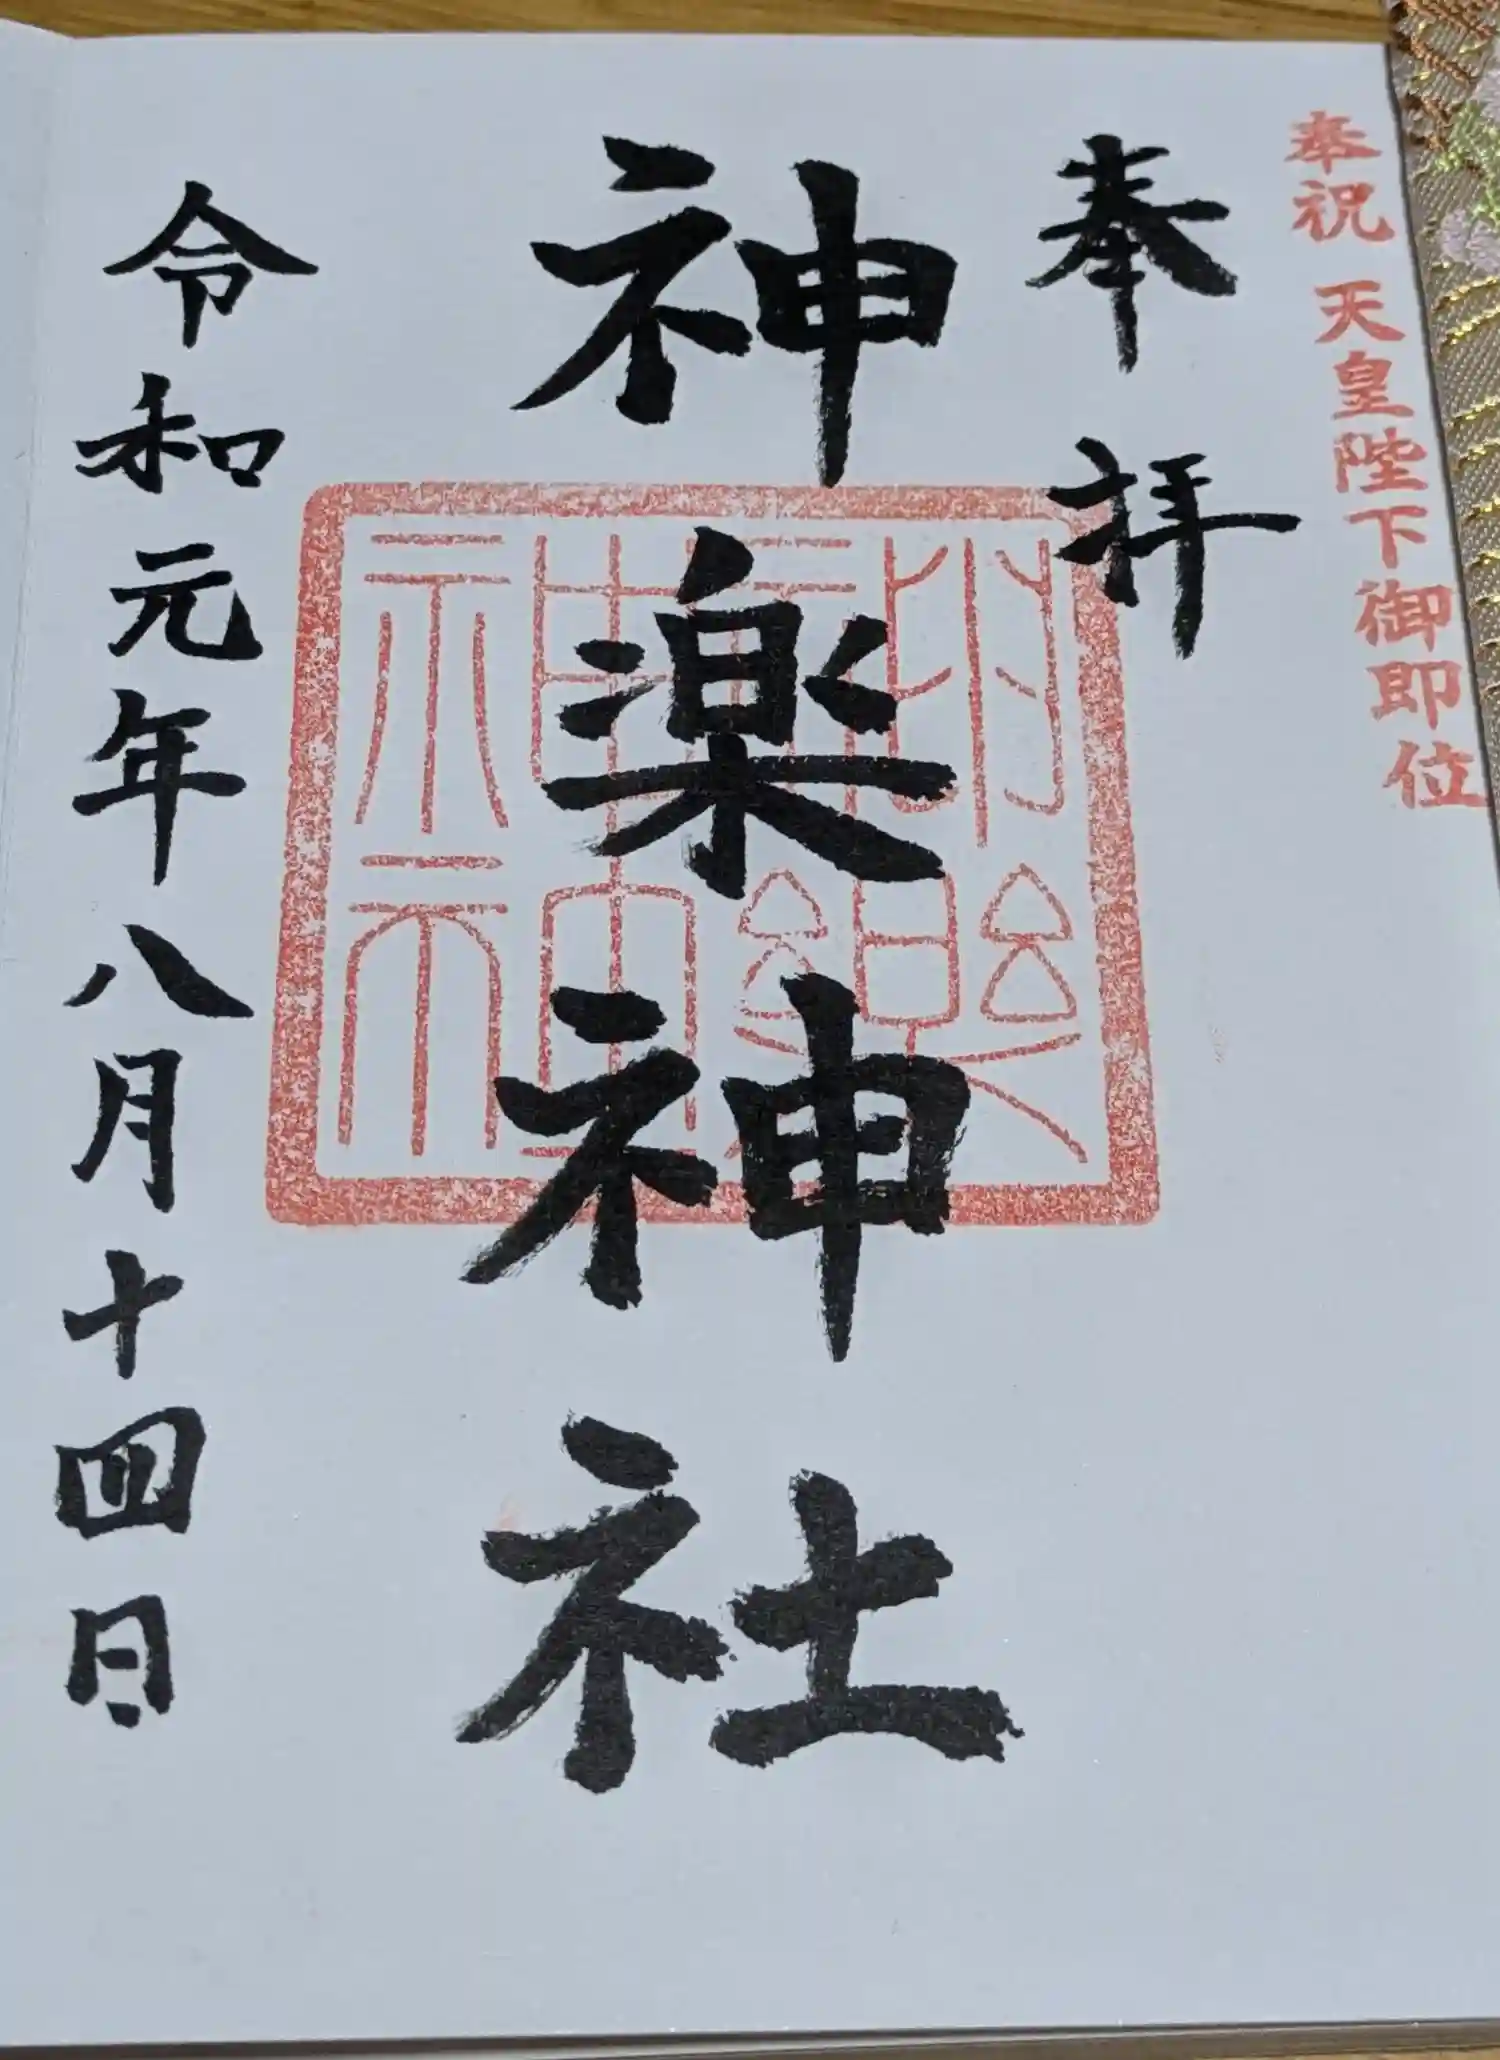 奉祝 天皇陛下御即位
奉拝
神楽神社
令和元年八月十四日